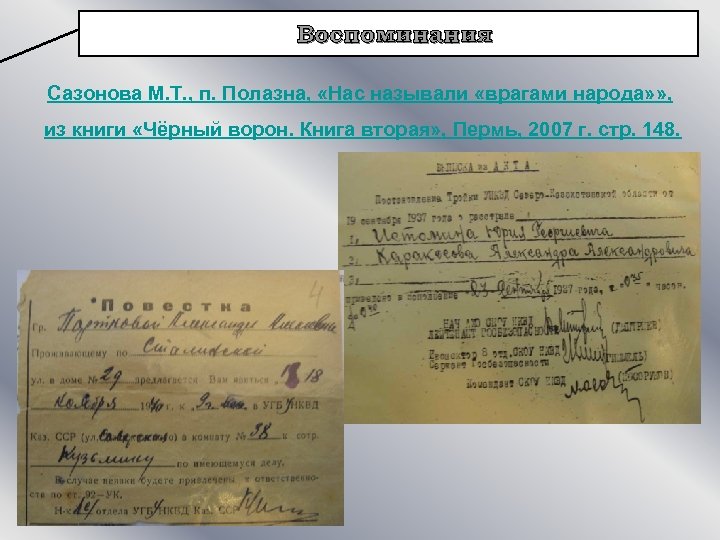 Воспоминания
Сазонова М. Т. , п. Полазна, «Нас называли «врагами народа» » ,
из книги «Чёрный ворон. Книга вторая» , Пермь, 2007 г. стр. 148.
ВЫПИСКА из АКТА
Постановление Тройки УНКВД Северо-Казахстанской области от
19 сентября 1937 года о расстреле
1, Истомина Юрия Георгиевича
2, Александра Александровича
3,
приведено в исполнение 23 сентября 1937 года, в часов.
НАЧ АХО СКОУ НКВД
ЛЕЙТЕНАНТ ГОСБЕЗОПАСНОСТИ
Инспектор 8 отд. СКОУ НКВД
Сержант Госбезопасности
Комендант СКОУ НКВД
4
Повестка
Гр. Александре
Проживающему по Сталинской
ул. в доме № 29 предлагается Вам явиться 18
ноября г. к в УГБ НКВД
Каз. ССР (ул. Советская) в комнату № 38 к сотр.
Кузьмину
по имеющемуся делу.
В случае неявки будете привлечены к ответственно-
сти по ст. 92—УК.
Н-к отдела УГБ НКВД Каз. ССР